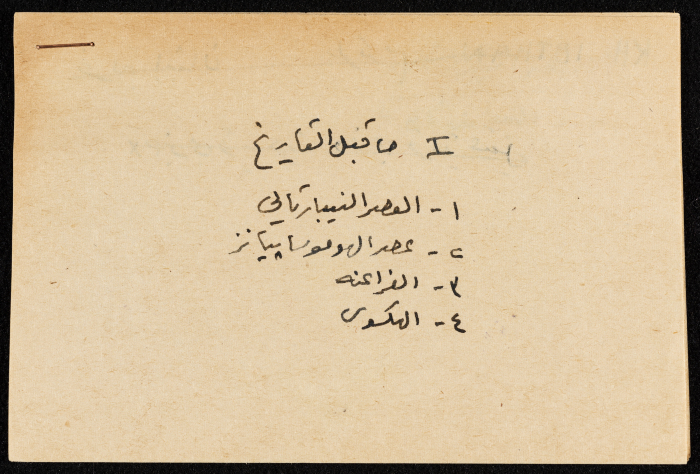 I ما قبل التاريخ
١- العصر النيبارتالي
٢- عصر الهوموسابيانز
٣- الفراعنه
٤- الهكسوس